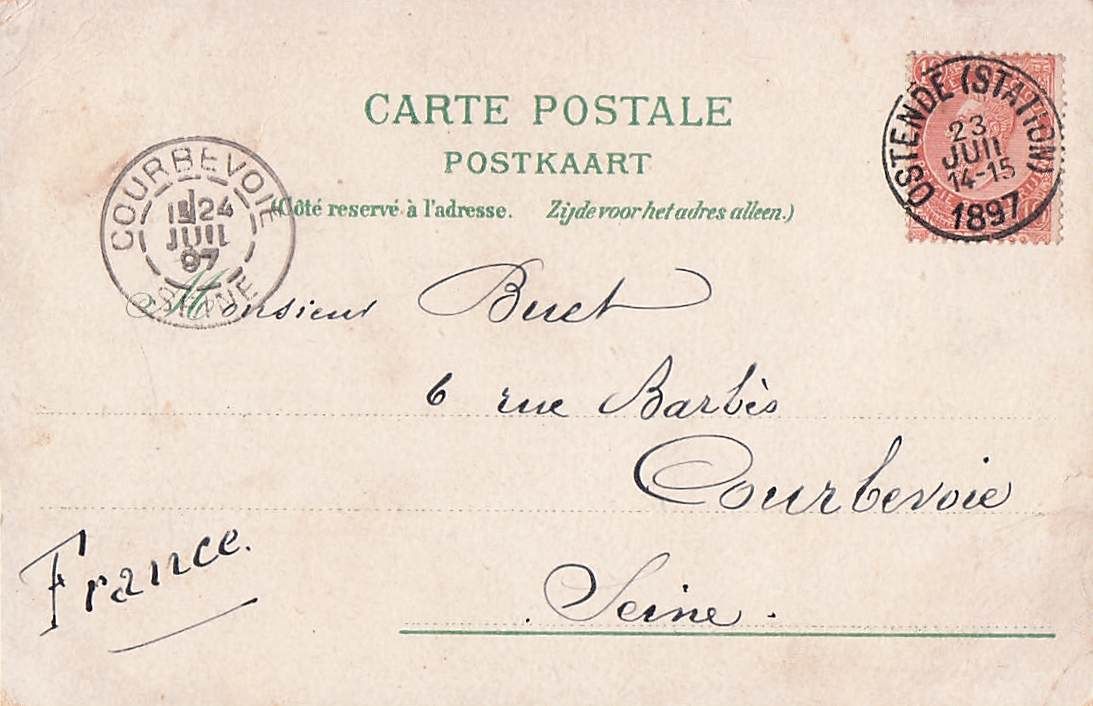 CARTE POSTALE
POSTKAART
(Côté reservé à l'adresse. Zijde voor het adres alleen.)
OSTENDE (STATION)
23
JUIL
14-15
1897
COURBEVOIE
24
JUIL
97
SEINE
Monsieur Buet
6 rue Barbès
Courbevoie
Seine.
France.